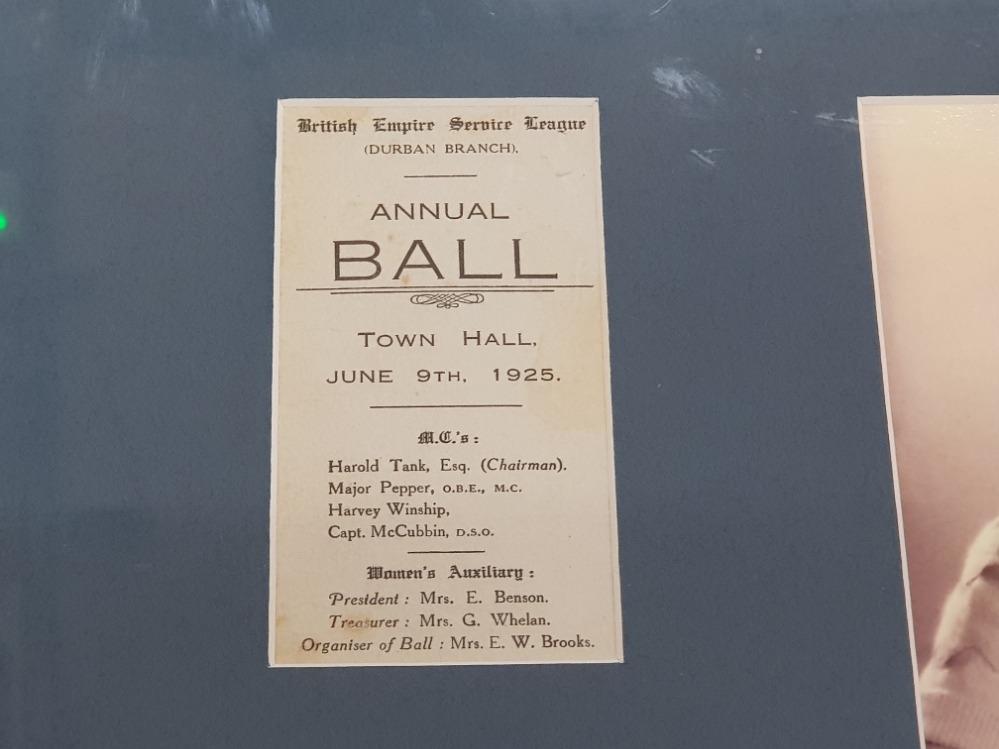 British Empire Service League
(DURBAN BRANCH).
ANNUAL
BALL
TOWN HALL,
JUNE 9TH, 1925.
M.C.'s :
Harold Tank, Esq. (Chairman).
Major Pepper, O.B.E., M.C.
Harvey Winship,
Capt. McCubbin, D.S.O.
Women's Auxiliary :
President : Mrs. E. Benson.
Treasurer : Mrs. G. Whelan.
Organiser of Ball : Mrs. E. W. Brooks.